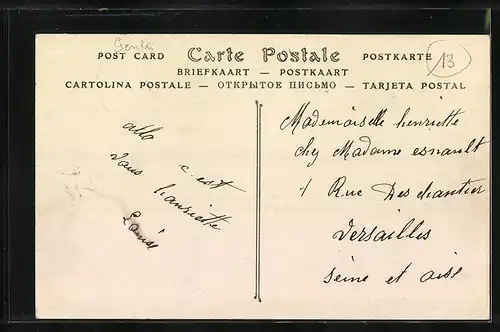 POST CARD Carte Postale POSTKARTE
BRIEFKAART — POSTKAART
CARTOLINA POSTALE — ОТКРЫТОЕ ПИСЬМО — TARJETA POSTAL
13
allo
vous c est
henriette
Mademoiselle henriette
chez Madame esnault
1 Rue Des chantier
Versailles
seine et oise